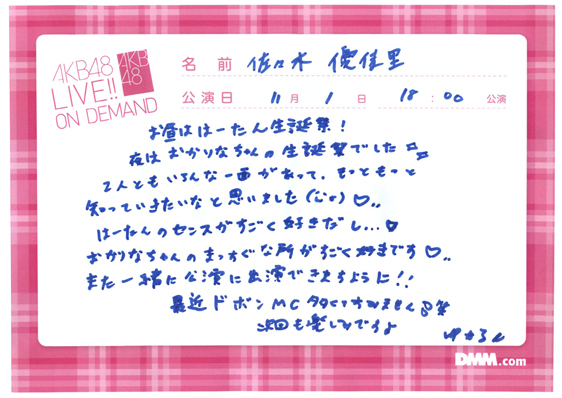 AKB48
LIVE!!
ON DEMAND
AKB
48
名 前 佐々木 優佳里
公演日 11月 1日 18:00 公演
お昼ははーたん生誕祭!
夜はおかりなちゃんの生誕祭でした
2人ともいろんな一面があって、もっともっと
知っていきたいなと思いました♡、、
はーたんのセンスがすごく好きだし...♥
おかりなちゃんのまっすぐな所がすごく好きです♡、、
また一緒に公演に出演できますように!!
最近ドボンMC多くてすみません笑
次回も楽しみですよ
ゆかるん
DMM.com